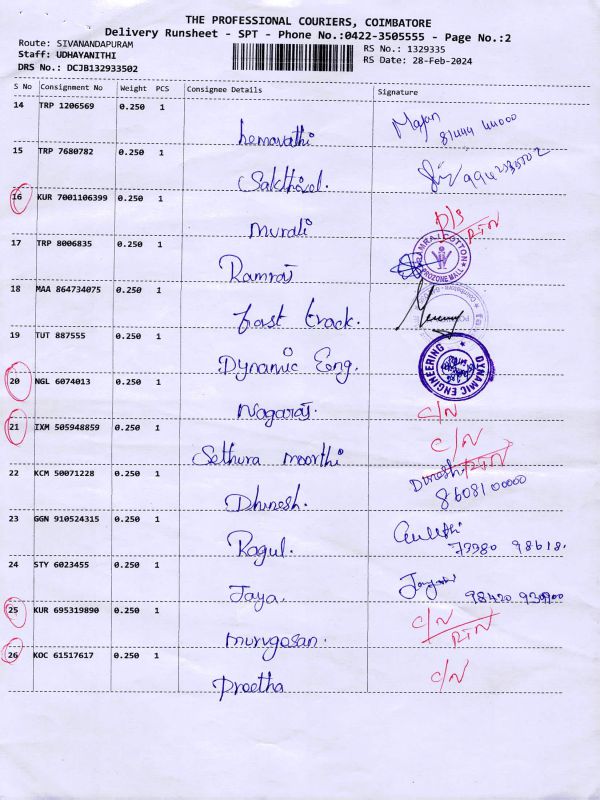 THE PROFESSIONAL COURIERS, COIMBATORE
Delivery Runsheet - SPT - Phone No.:0422-3505555 - Page No.:2
Route: SIVANANDAPURAM RS No.: 1329335
Staff: UDHAYANITHI RS Date: 28-Feb-2024
DRS No.: DCJB132933502
S No Consignment No Weight PCS Consignee Details Signature
14 TRP 1206569 0.250 1
hemavathi
15 TRP 7680782 0.250 1
Sakthivel.
16 KUR 7001106399 0.250 1
Murali D/S
RTN
17 TRP 8006835 0.250 1
Ramraj PROZONE MALL
18 MAA 864734075 0.250 1
fast track.
19 TUT 887555 0.250 1
Dynamic Eeng. DYNAMIC ENGINEERING
20 NGL 6074013 0.250 1
Nagaraj. C/N
21 IXM 505948859 0.250 1 C/N
Sethura moorthi RTN
22 KCM 50071228 0.250 1 Dinesh
Dhinesh. 8608100000
23 GGN 910524315 0.250 1
Ragul.
24 STY 6023455 0.250 1
Jaya.
25 KUR 695319890 0.250 1 C/N
murugesan. RTN
26 KOC 61517617 0.250 1 C/N
Preetha